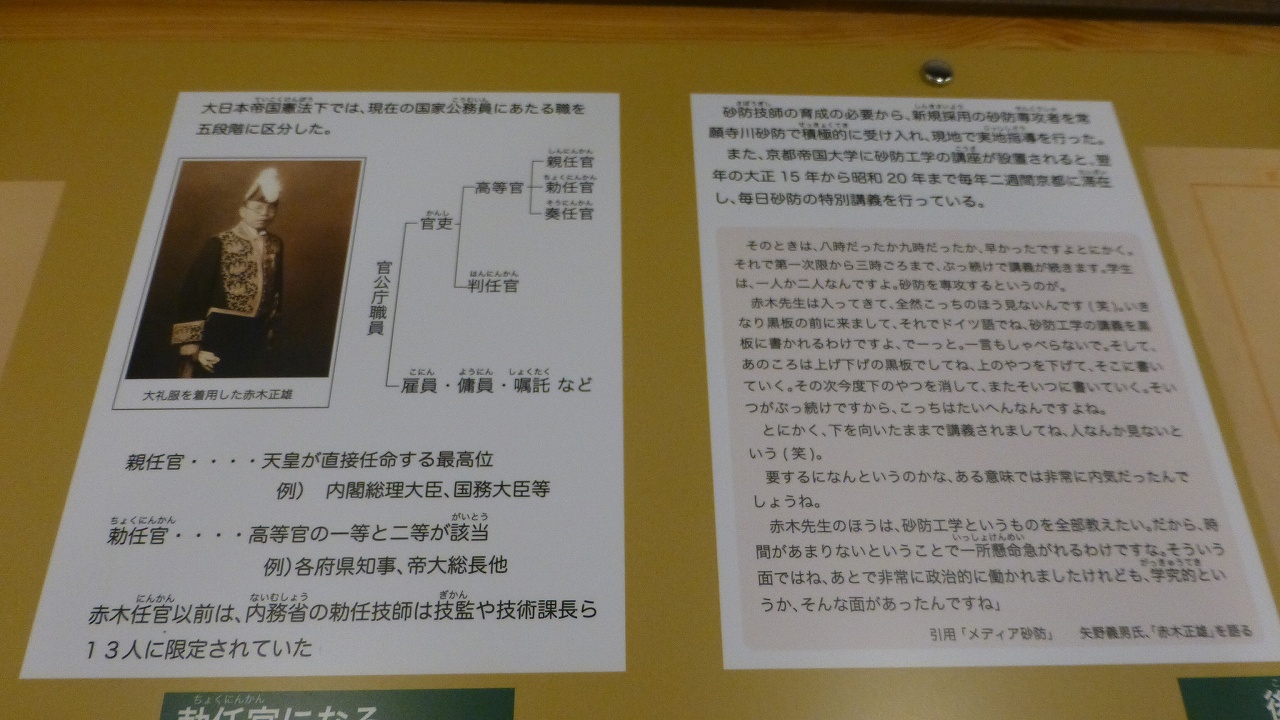 大日本帝国憲法下では、現在の国家公務員にあたる職を
五段階に区分した。
大礼服を着用した赤木正雄
官公庁職員
官吏
高等官
親任官
勅任官
奏任官
判任官
雇員・傭員・嘱託 など
親任官・・・・天皇が直接任命する最高位
例) 内閣総理大臣、国務大臣等
勅任官・・・・高等官の一等と二等が該当
例)各府県知事、帝大総長他
赤木任官以前は、内務省の勅任技師は技監や技術課長ら
13人に限定されていた
勅任官になる
砂防技師の育成の必要から、新規採用の砂防専攻者を常
願寺川砂防で積極的に受け入れ、現地で実地指導を行った。
また、京都帝国大学に砂防工学の講座が設置されると、翌
年の大正15年から昭和20年まで毎年二週間京都に滞在
し、毎日砂防の特別講義を行っている。
そのときは、八時だったか九時だったか、早かったですよとにかく。
それで第一次限から三時ごろまで、ぶっ続けで講義が続きます。学生
は、一人か二人なんですよ。砂防を専攻するというのが。
赤木先生は入ってきて、全然こっちのほう見ないんです(笑)。いき
なり黒板の前に来まして、それでドイツ語でね、砂防工学の講義を黒
板に書かれるわけですよ、でーっと。一言もしゃべらないで。そして、
あのころは上げ下げの黒板でしてね、上のやつを下げて、そこに書い
ていく。その次今度下のやつを消して、またそいつに書いていく。そい
つがぶっ続けですから、こっちはたいへんなんですよね。
とにかく、下を向いたままで講義されましてね、人なんか見ないと
いう(笑)。
要するになんというのかな、ある意味では非常に内気だったんで
しょうね。
赤木先生のほうは、砂防工学というものを全部教えたい。だから、時
間があまりないということで一所懸命急がれるわけですな。そういう
面ではね、あとで非常に政治的に働かれましたけれども、学究的とい
うか、そんな面があったんですね」
引用「メディア砂防」 矢野義男氏、「赤木正雄」を語る